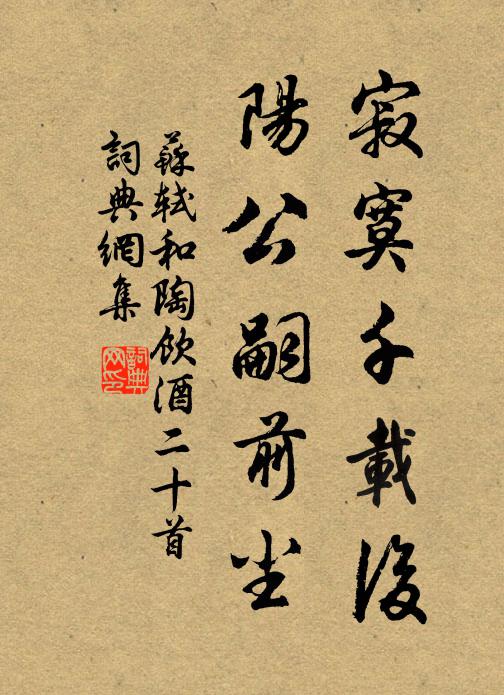 寂寞千載後
陽公嗣前尘
蘇軾和陶飲酒二十首
詞典網集
詞典网印